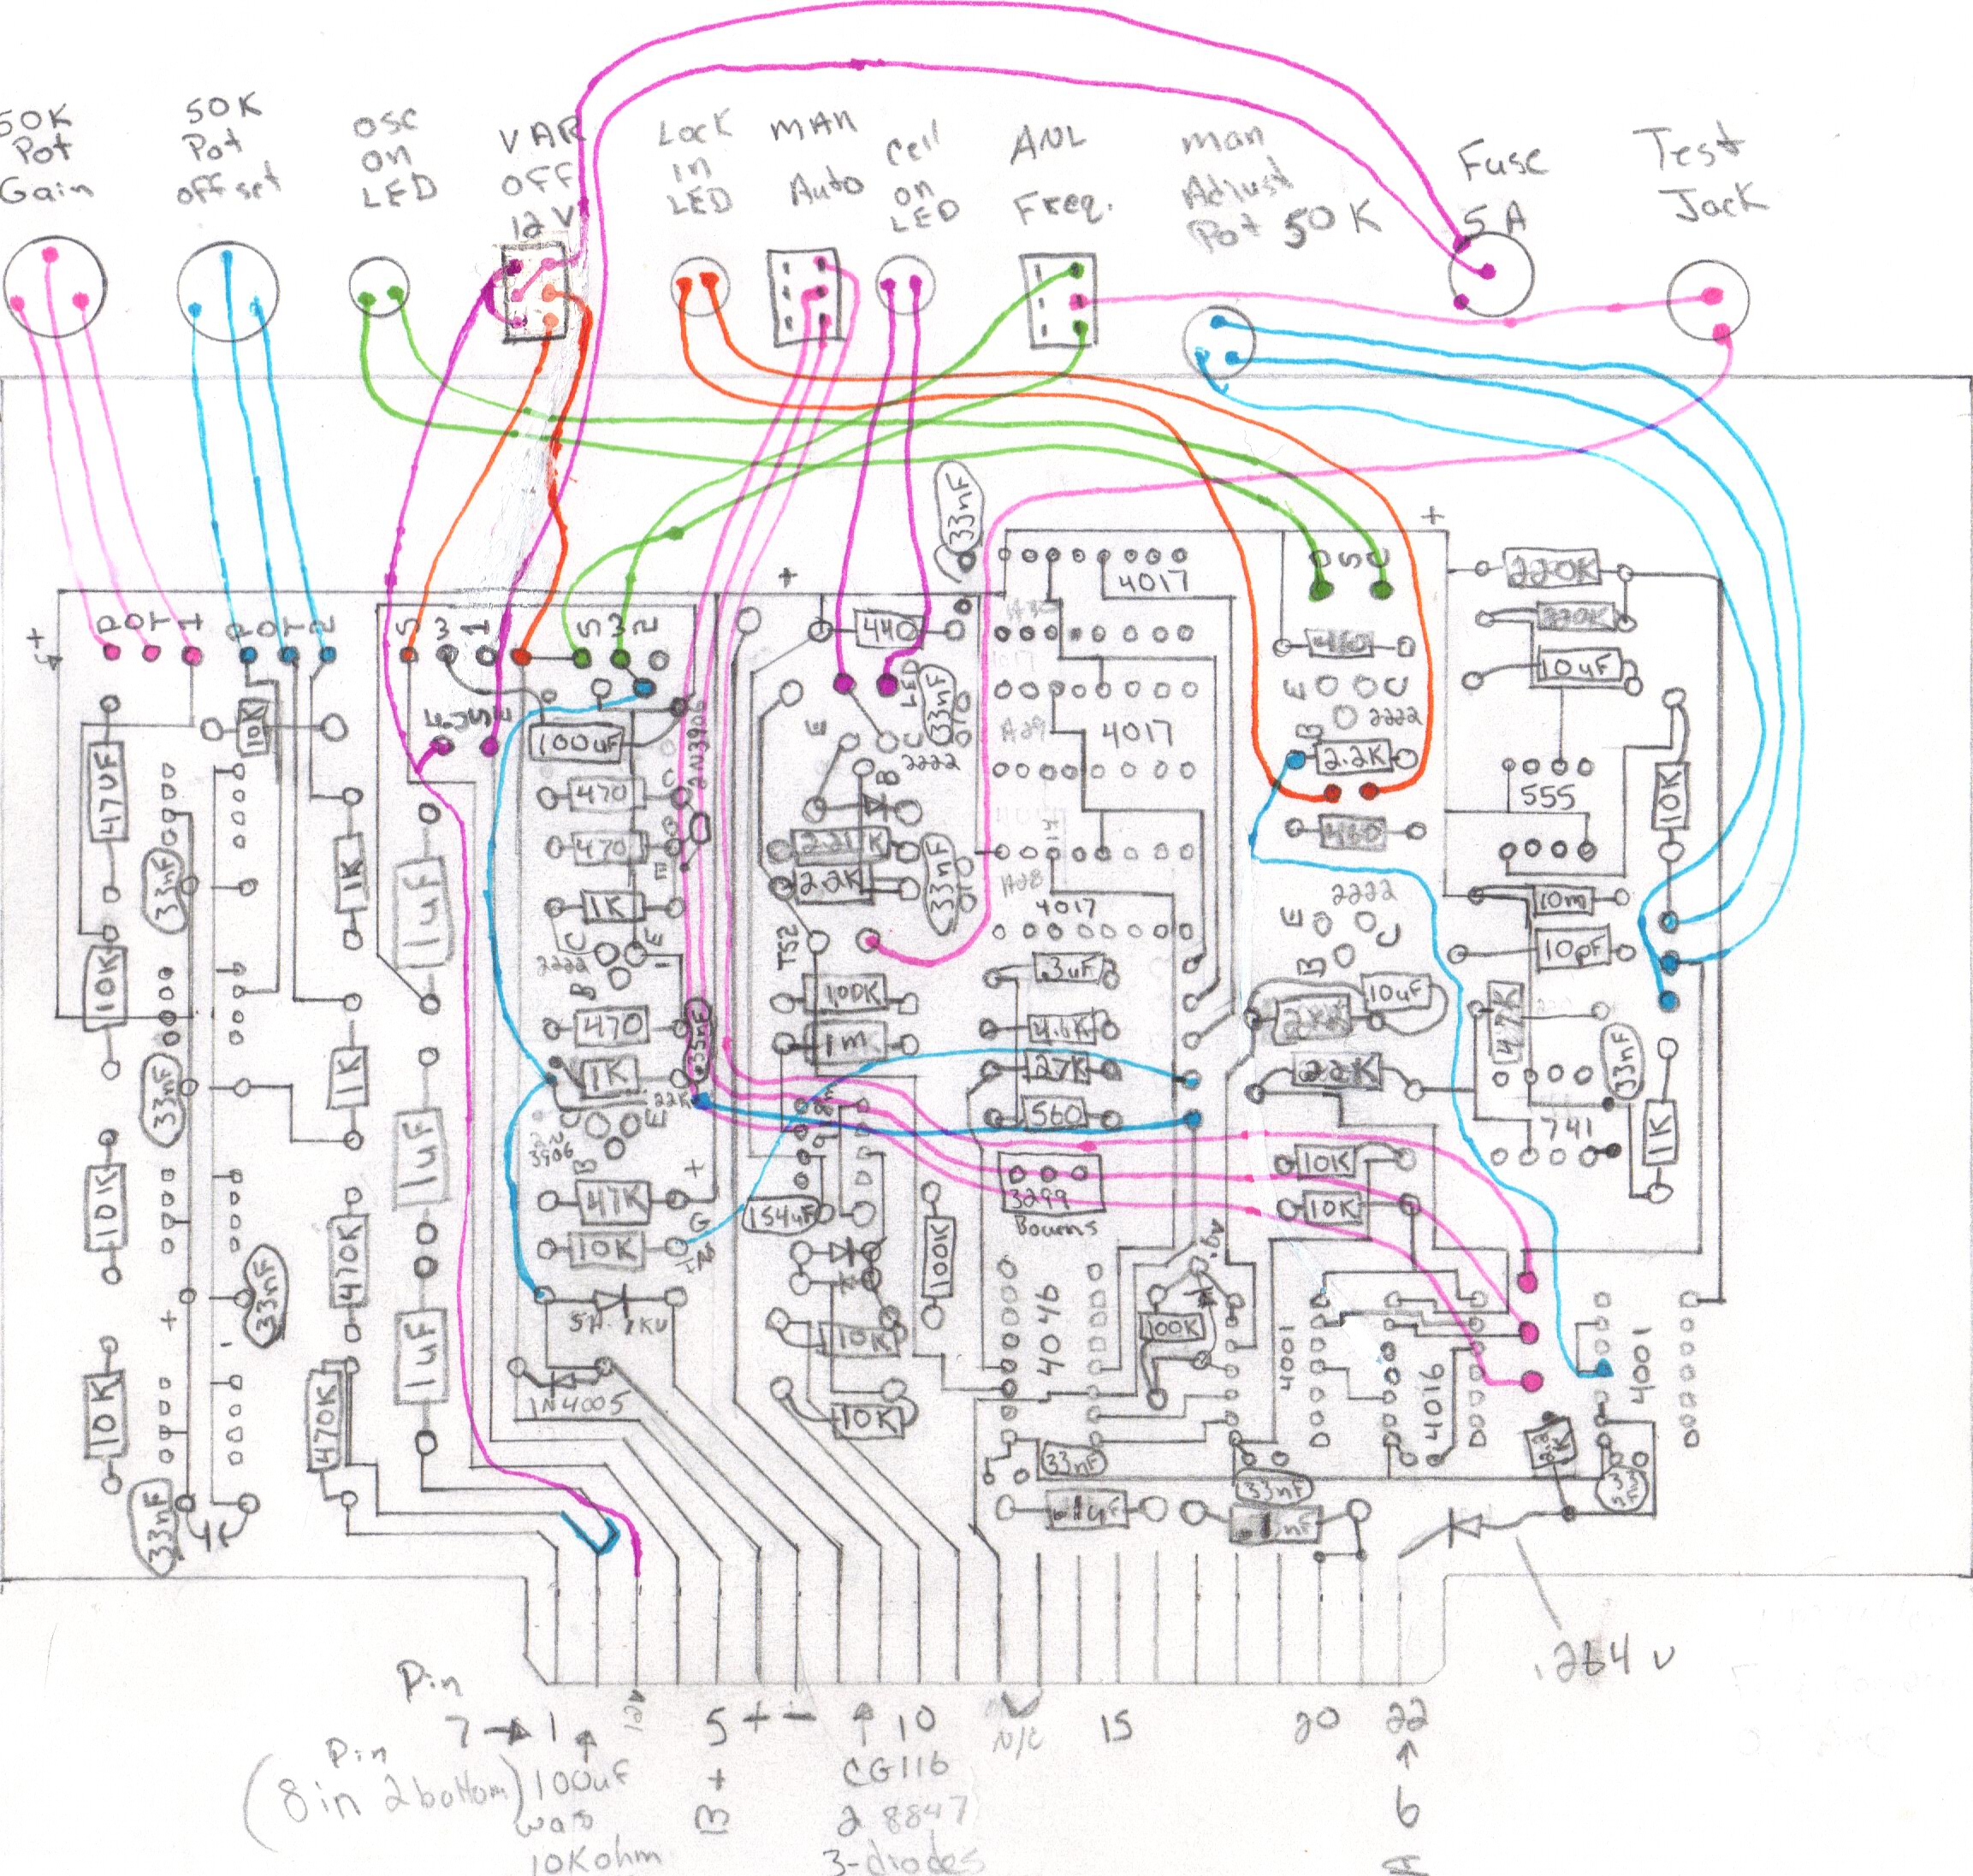 50K
Pot
Gain
50K
Pot
offset
osc
on
LED
VAR
OFF
12V
Lock
in
LED
MAN
Auto
Cell
on
LED
ANL
Freq.
man
Adjust
Pot 50K
Fuse
5A
Test
Jack
+
33nF
4017
+
220K
220K
10uF
POT 1
POT 2
5 3 1
5 3 2
440
LED
33nF
460
E C
2222
B
2.2K
460
47UF
10K
100uF
2N3906
E
C
2222
B
4017
555
10K
470
C
470
B
E
33nF
1K
1uF
221K
2.2K
33nF
4017
10m
10pF
1K
C E
2222
B
TS2
2222
E C
B
10K
100K
.3uF
10uF
470
33nF
1m
4.6K
47K
33nF
33nF
1K
1K
22K
27K
22K
560
741
1K
E
3906
B
1uF
10K
+
47K
G
154uF
3299
Bourns
10K
10K
10K
100K
33nF
470K
4046
100K
4001
4016
4001
1N4005
10K
1uF
10K
470K
10K
33nF
33nF
33nF
33nF
Pin
7 → 1
12V
5 + -
10
N/C
15
20
22
.264 V
Pin
(8 in 2 bottom)
100uF
was
10Kohm
B +
CG116
2 8847
3-diodes
A 6